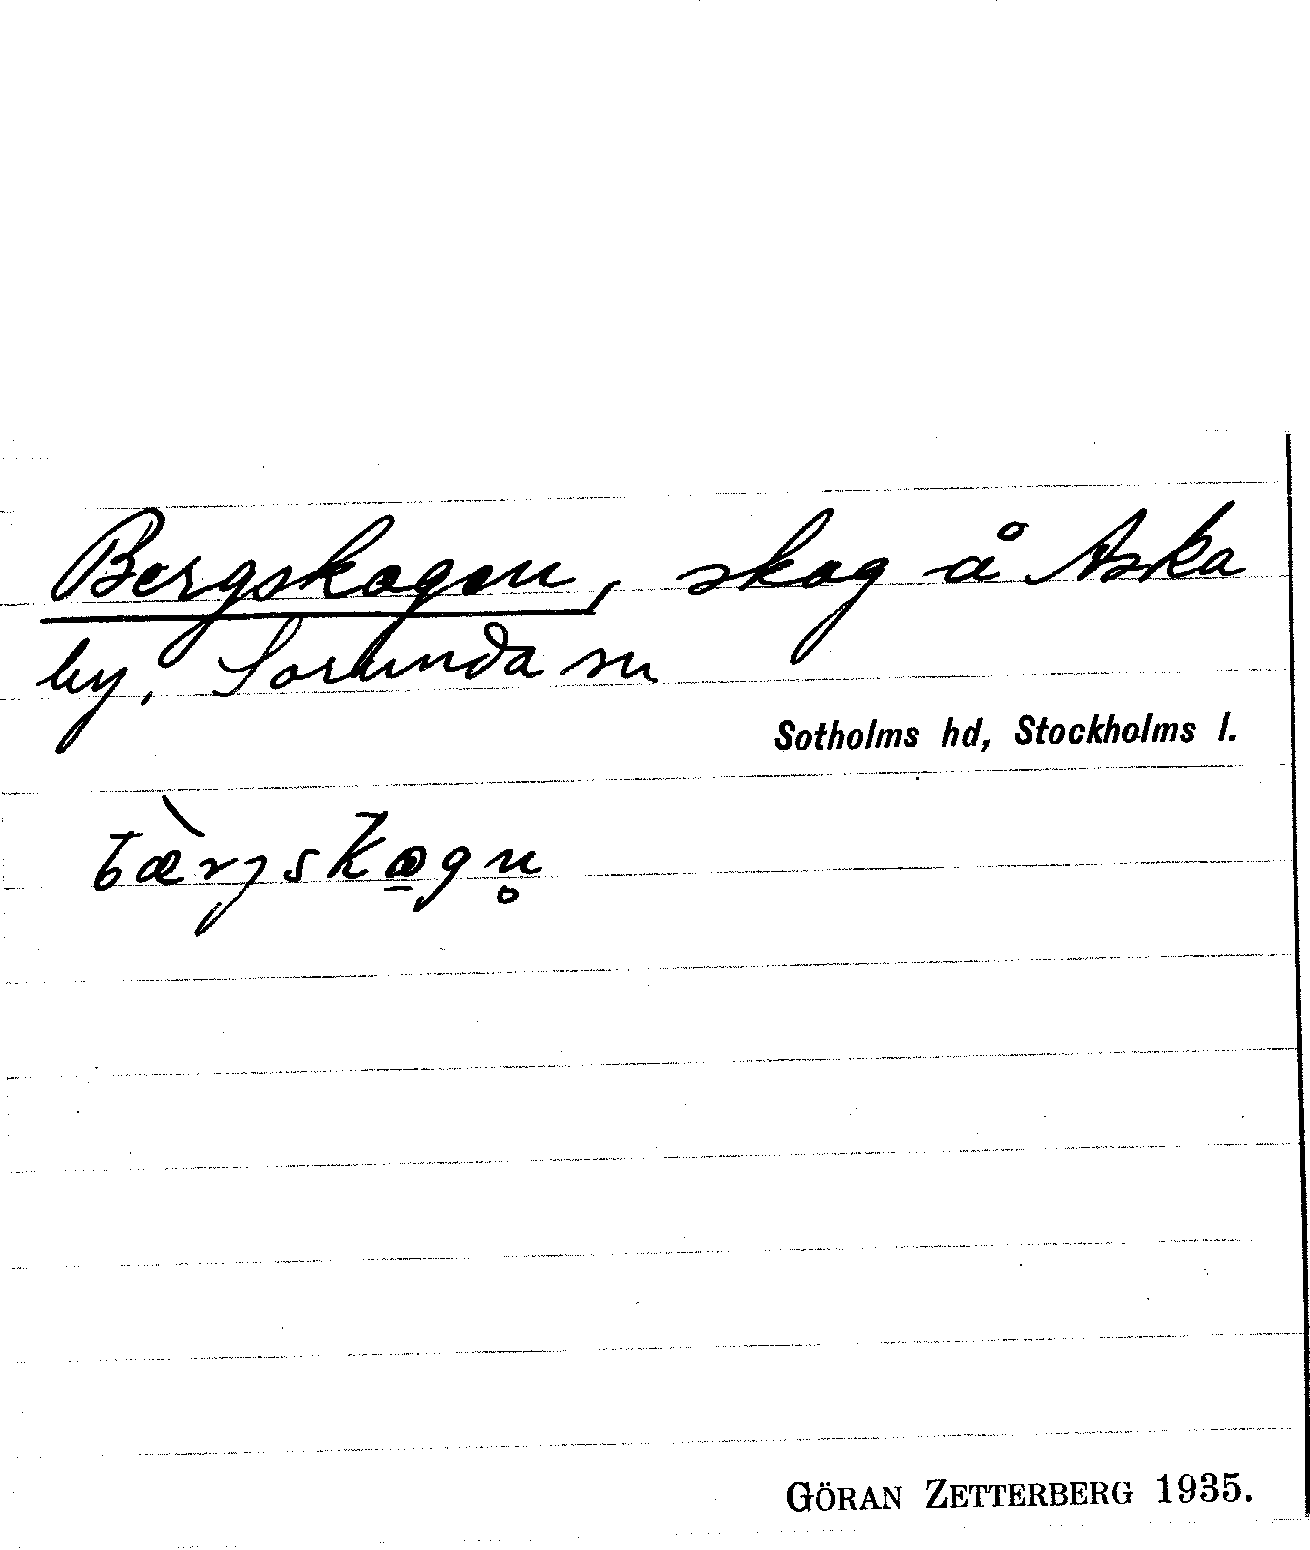 Bergskogen, skog å Aska
by, Sorunda sn
Sotholms hd, Stockholms l.
bæ̀rjskωgn̥
GÖRAN ZETTERBERG 1935.